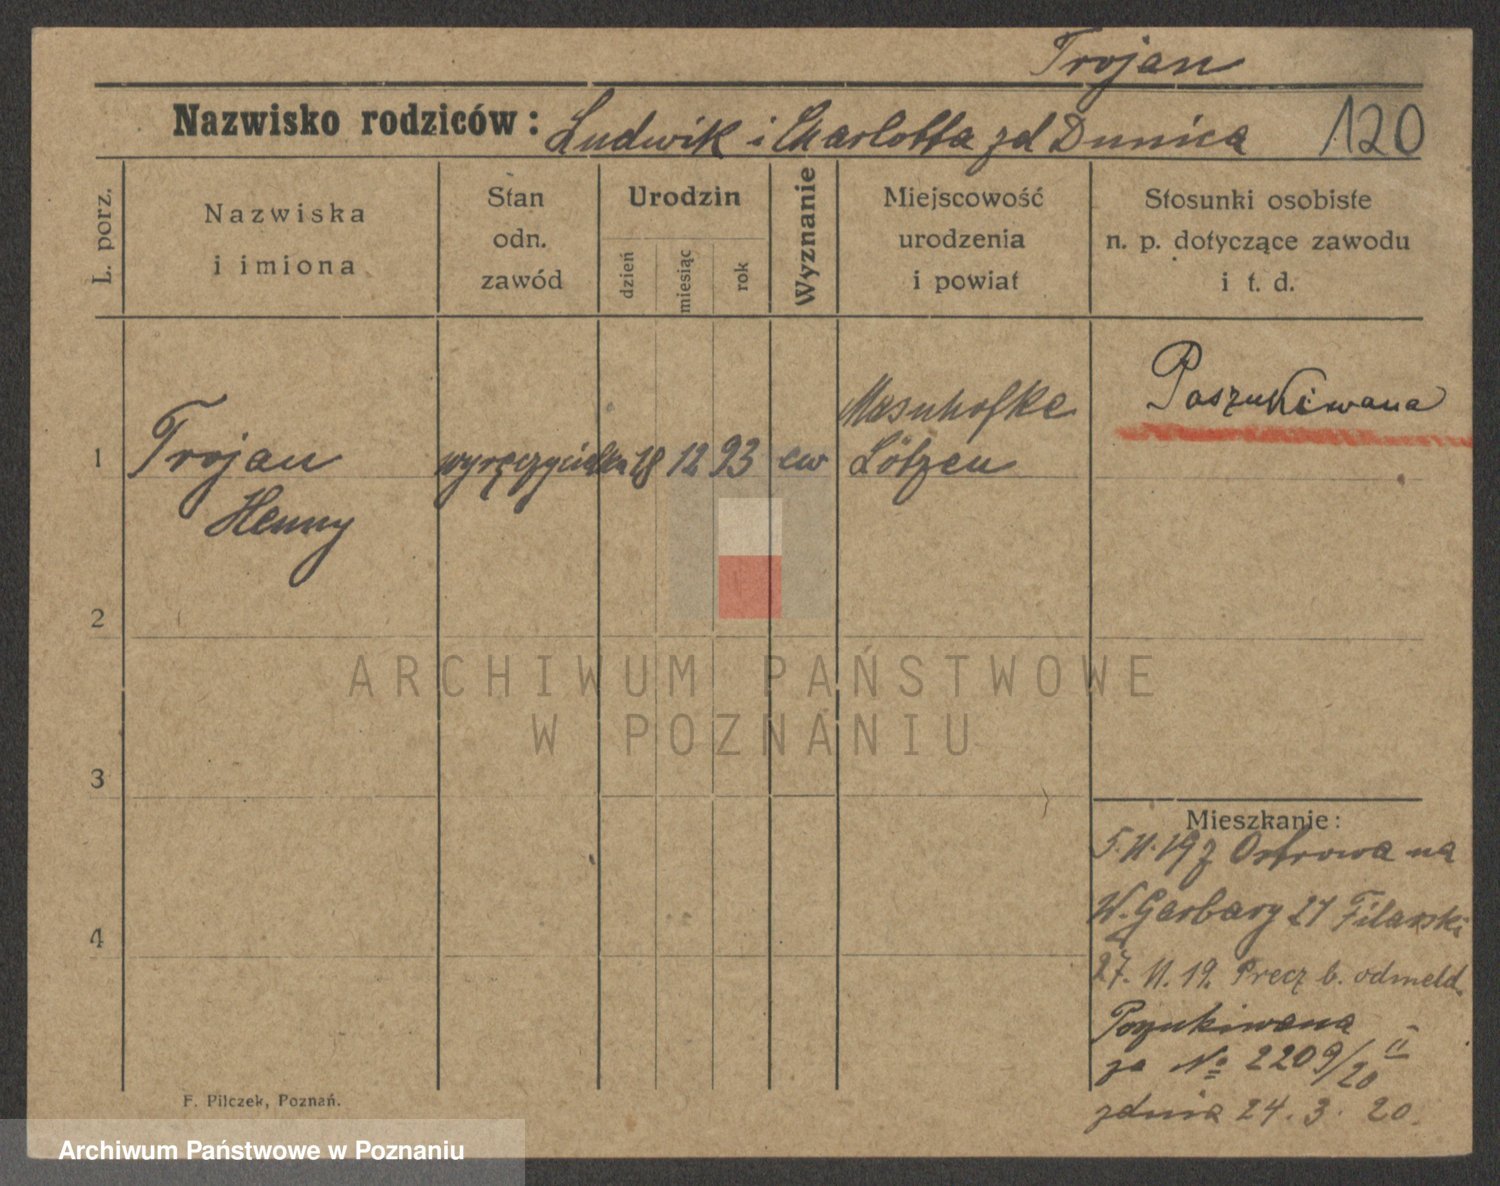 Trojan
Nazwisko rodziców: Ludwik i Charlotta zd Dunica 120
L. porz.
Nazwiska
i imiona
Stan
odn.
zawód
Urodzin
dzień
miesiąc
rok
Wyznanie
Miejscowość
urodzenia
i powiat
Stosunki osobiste
n. p. dotyczące zawodu
i t. d.
Poszukiwana
1 Trojan 18 12 93 ew
Henny
Masuhofke
Lötzen
2
3
4
Mieszkanie:
5.11.19 z Ostrowa na
W. Garbary 27 Filarski
27. 11. 19. Precz b. odmeld.
Poszukiwana
za № 2209/20 II
zdnia 24. 3. 20.
F. Pilczek, Poznań.
ARCHIWUM PAŃSTWOWE
W POZNANIU
Archiwum Państwowe w Poznaniu